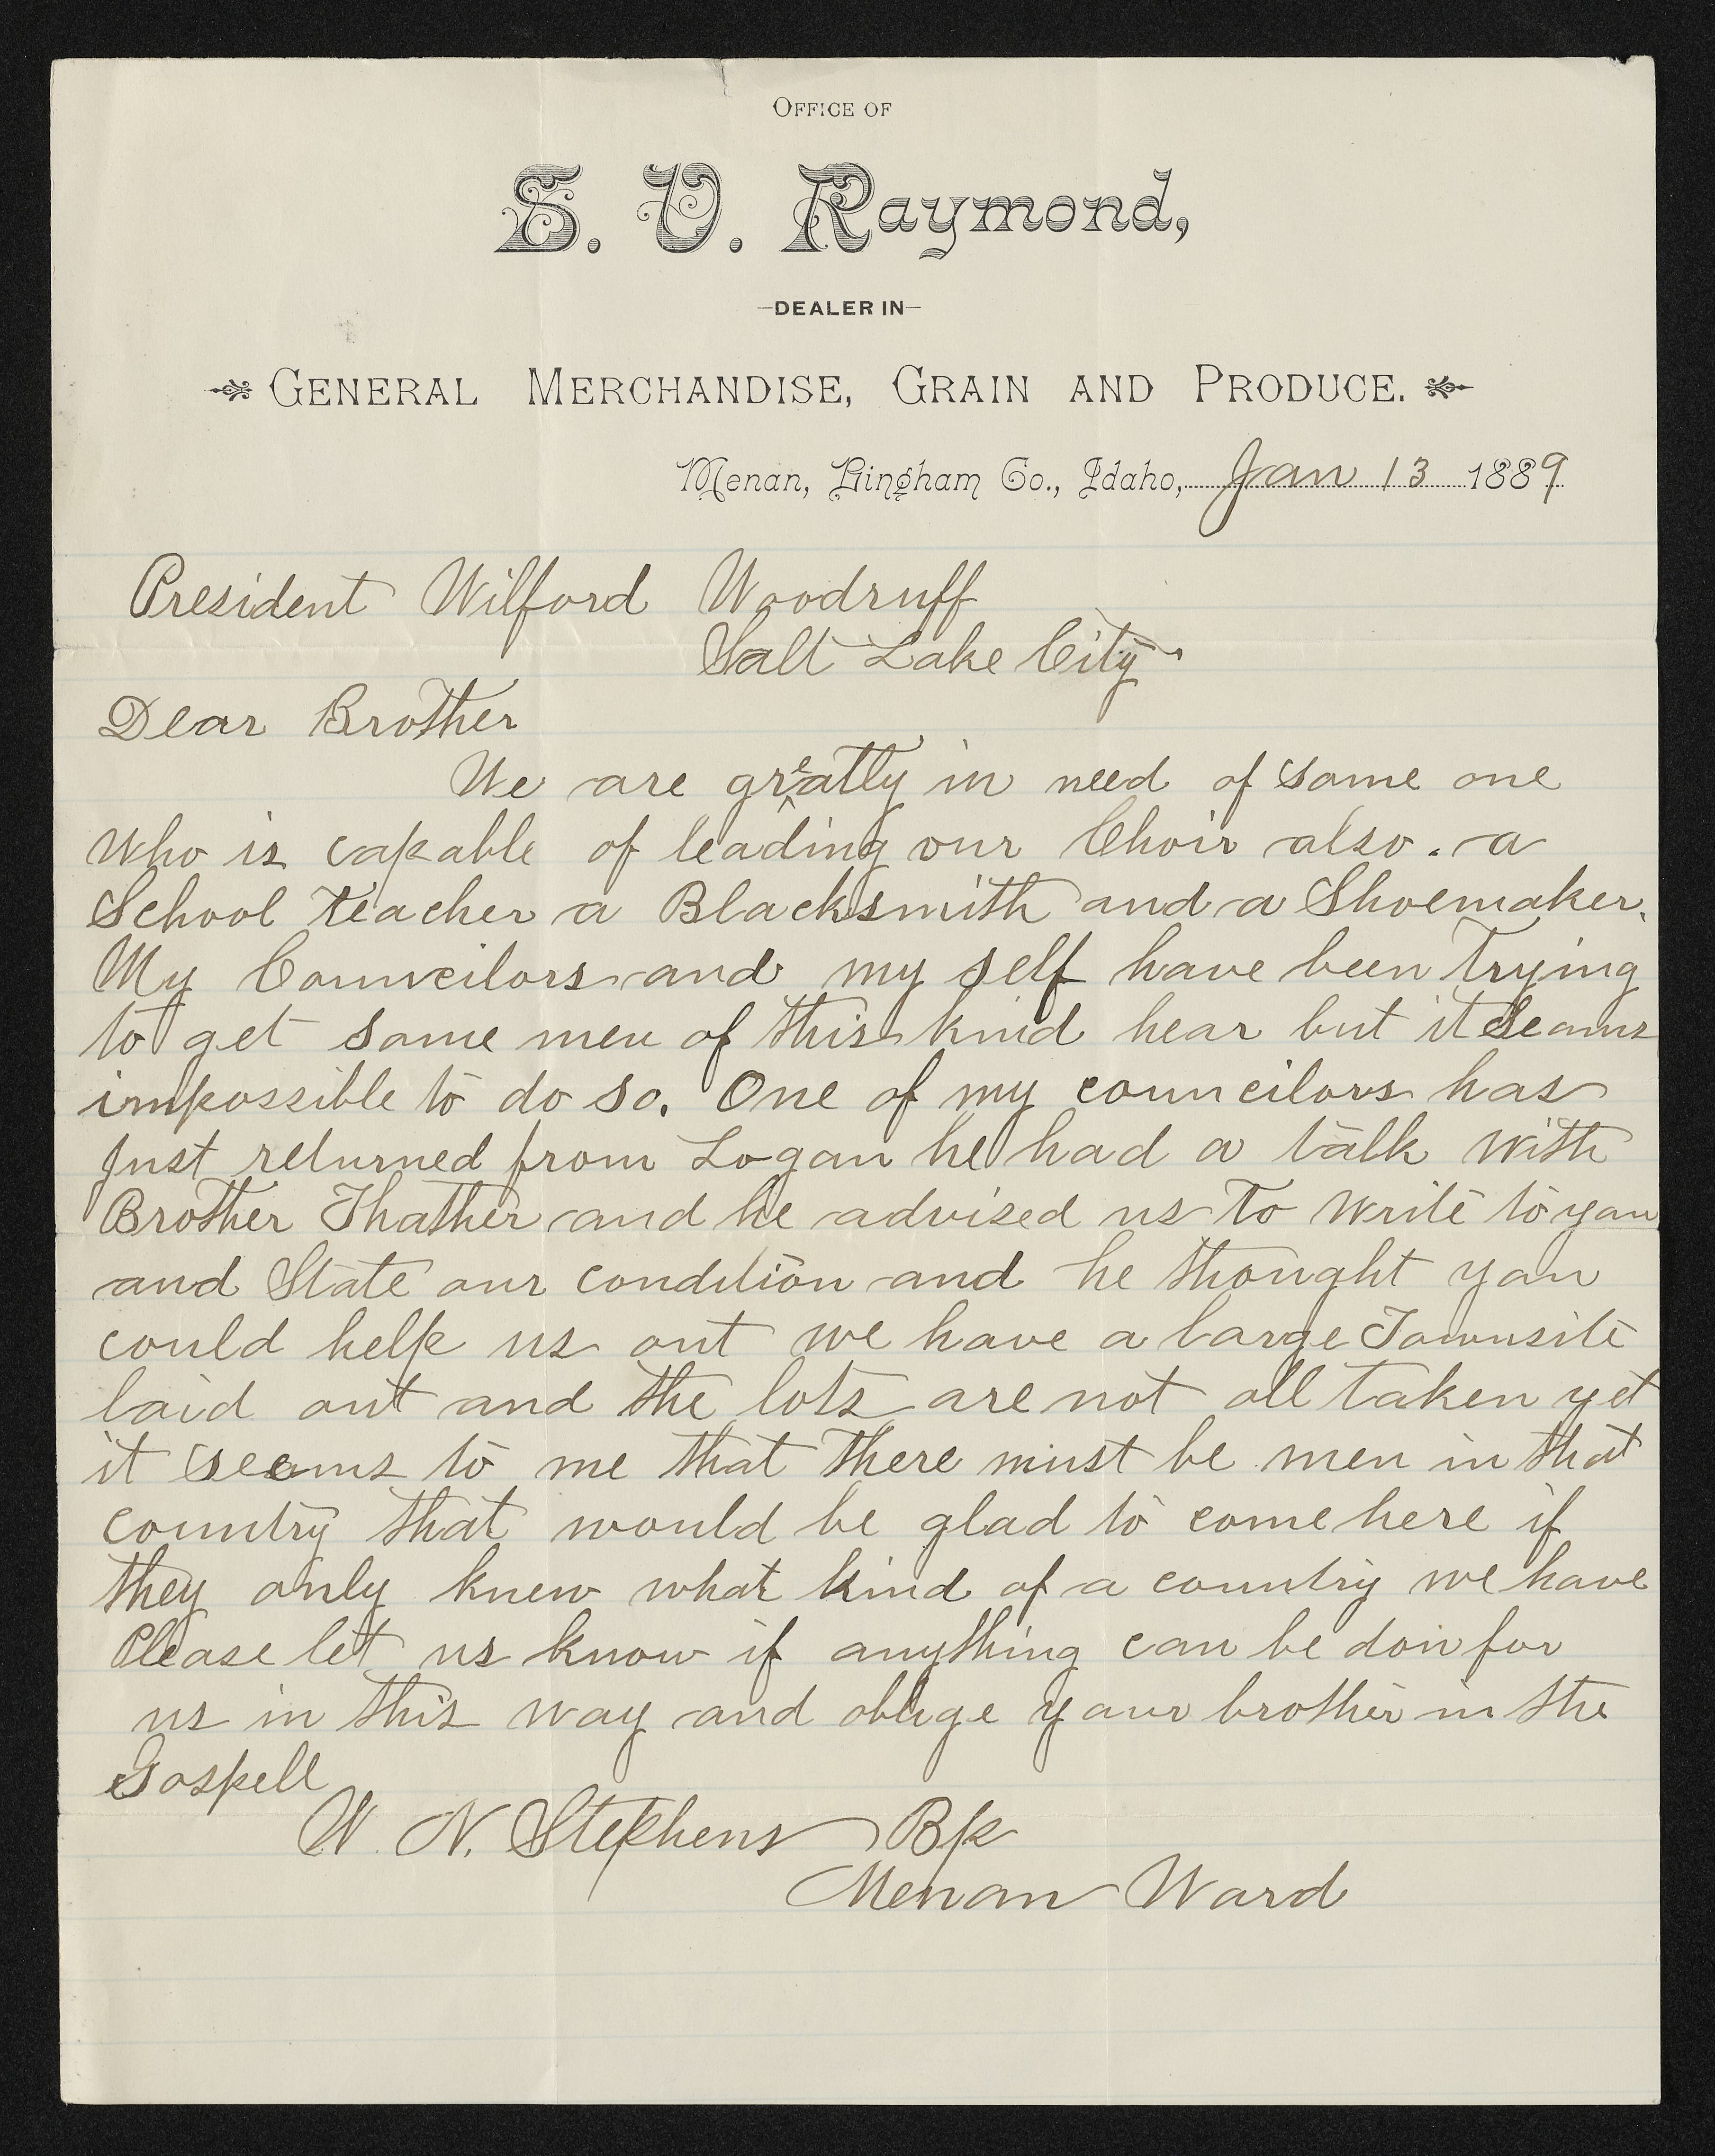 OFFICE OF
S. V. Raymond,
DEALER IN
GENERAL MERCHANDISE, GRAIN AND PRODUCE.
Menan, Bingham Co., Idaho, Jan 13 1889
President Wilford Woodruff
Salt Lake City
Dear Brother
We are greatly in need of some one
who is capable of leading our Choir also. a
School teacher a Blacksmith and a Shoemaker.
My Councilors and my self have been trying
to get some men of this kind hear but it seams
impossible to do so. One of my councilors has
Just returned from Logan he had a talk with
Brother Thather and he advised us to write to you
and State our condition and he thought you
could help us out we have a large Townsite
laid out and the lots are not all taken yet
it seems to me that there must be men in that
country that would be glad to come here if
they only knew what kind of a country we have
Please let us know if anything can be don for
us in this way and oblige your brother in the
Gospell
W. N. Stephens Bp
Menan Ward